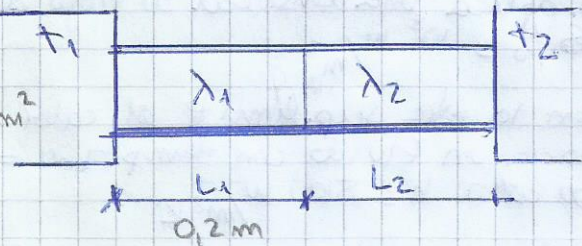 t1 t2
λ1 λ2
m²
L1 L2
0,2 m